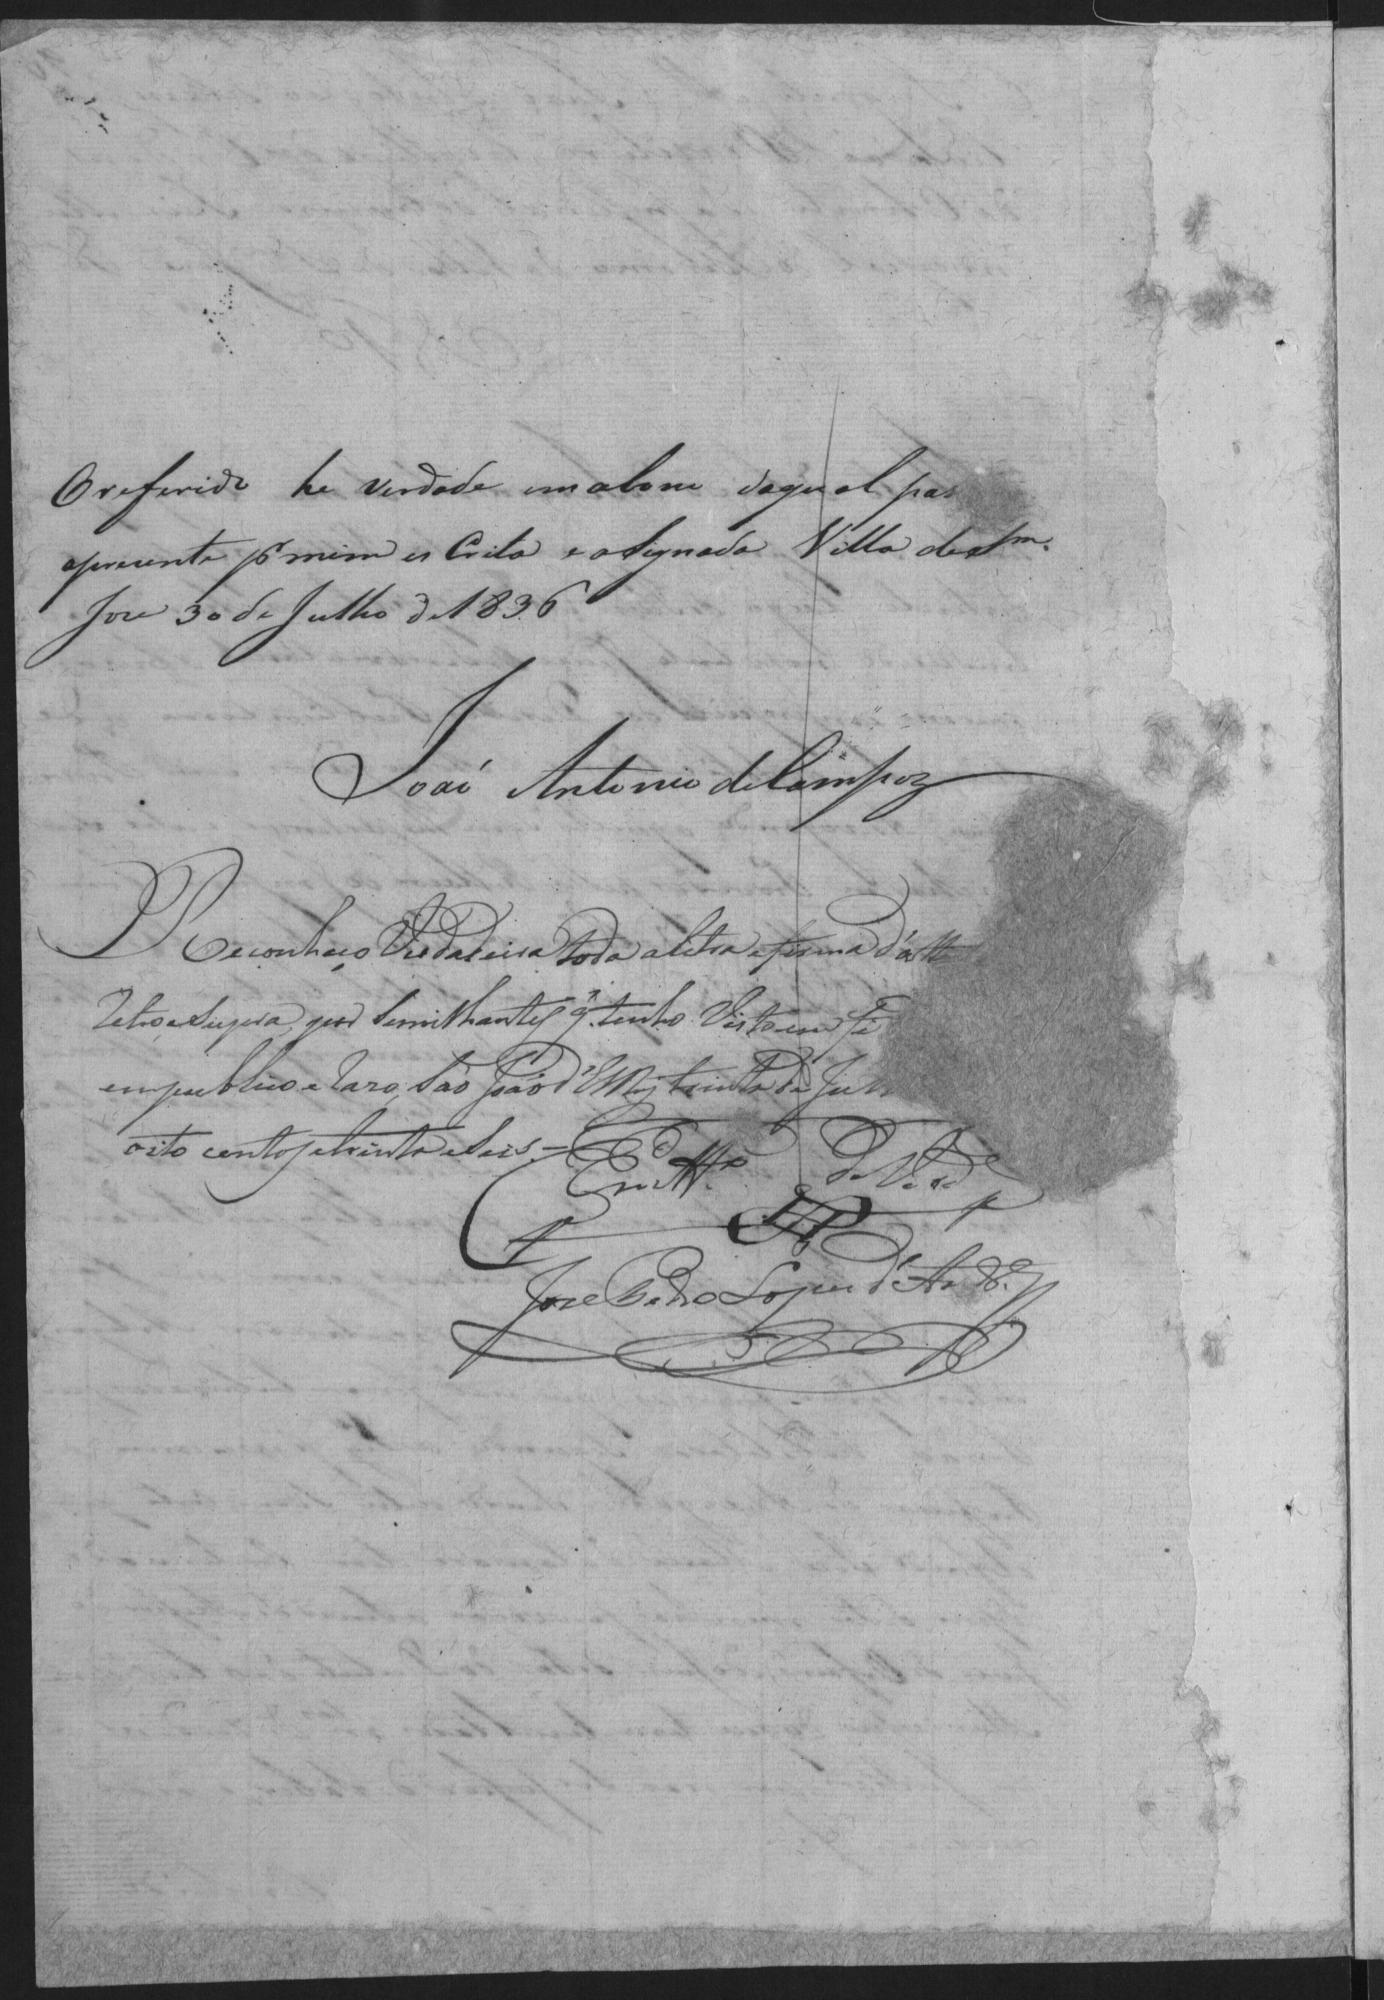 O referido he verdade em abono daqual pas
apresente pr mim es Crita e asignada Villa de Sm.
Jose 30 de Julho de 1836
João Antonio de Campoz
Reconheço Verdadeira toda a letra e firma d'att
Retro e Supra, por Semilhantes q. tenho Visto em Fé
em publico e razo, São João d'ElRei trinta de Jul
oito centos e trinta e Seis =
Em
Jose Pedro Lopes d'